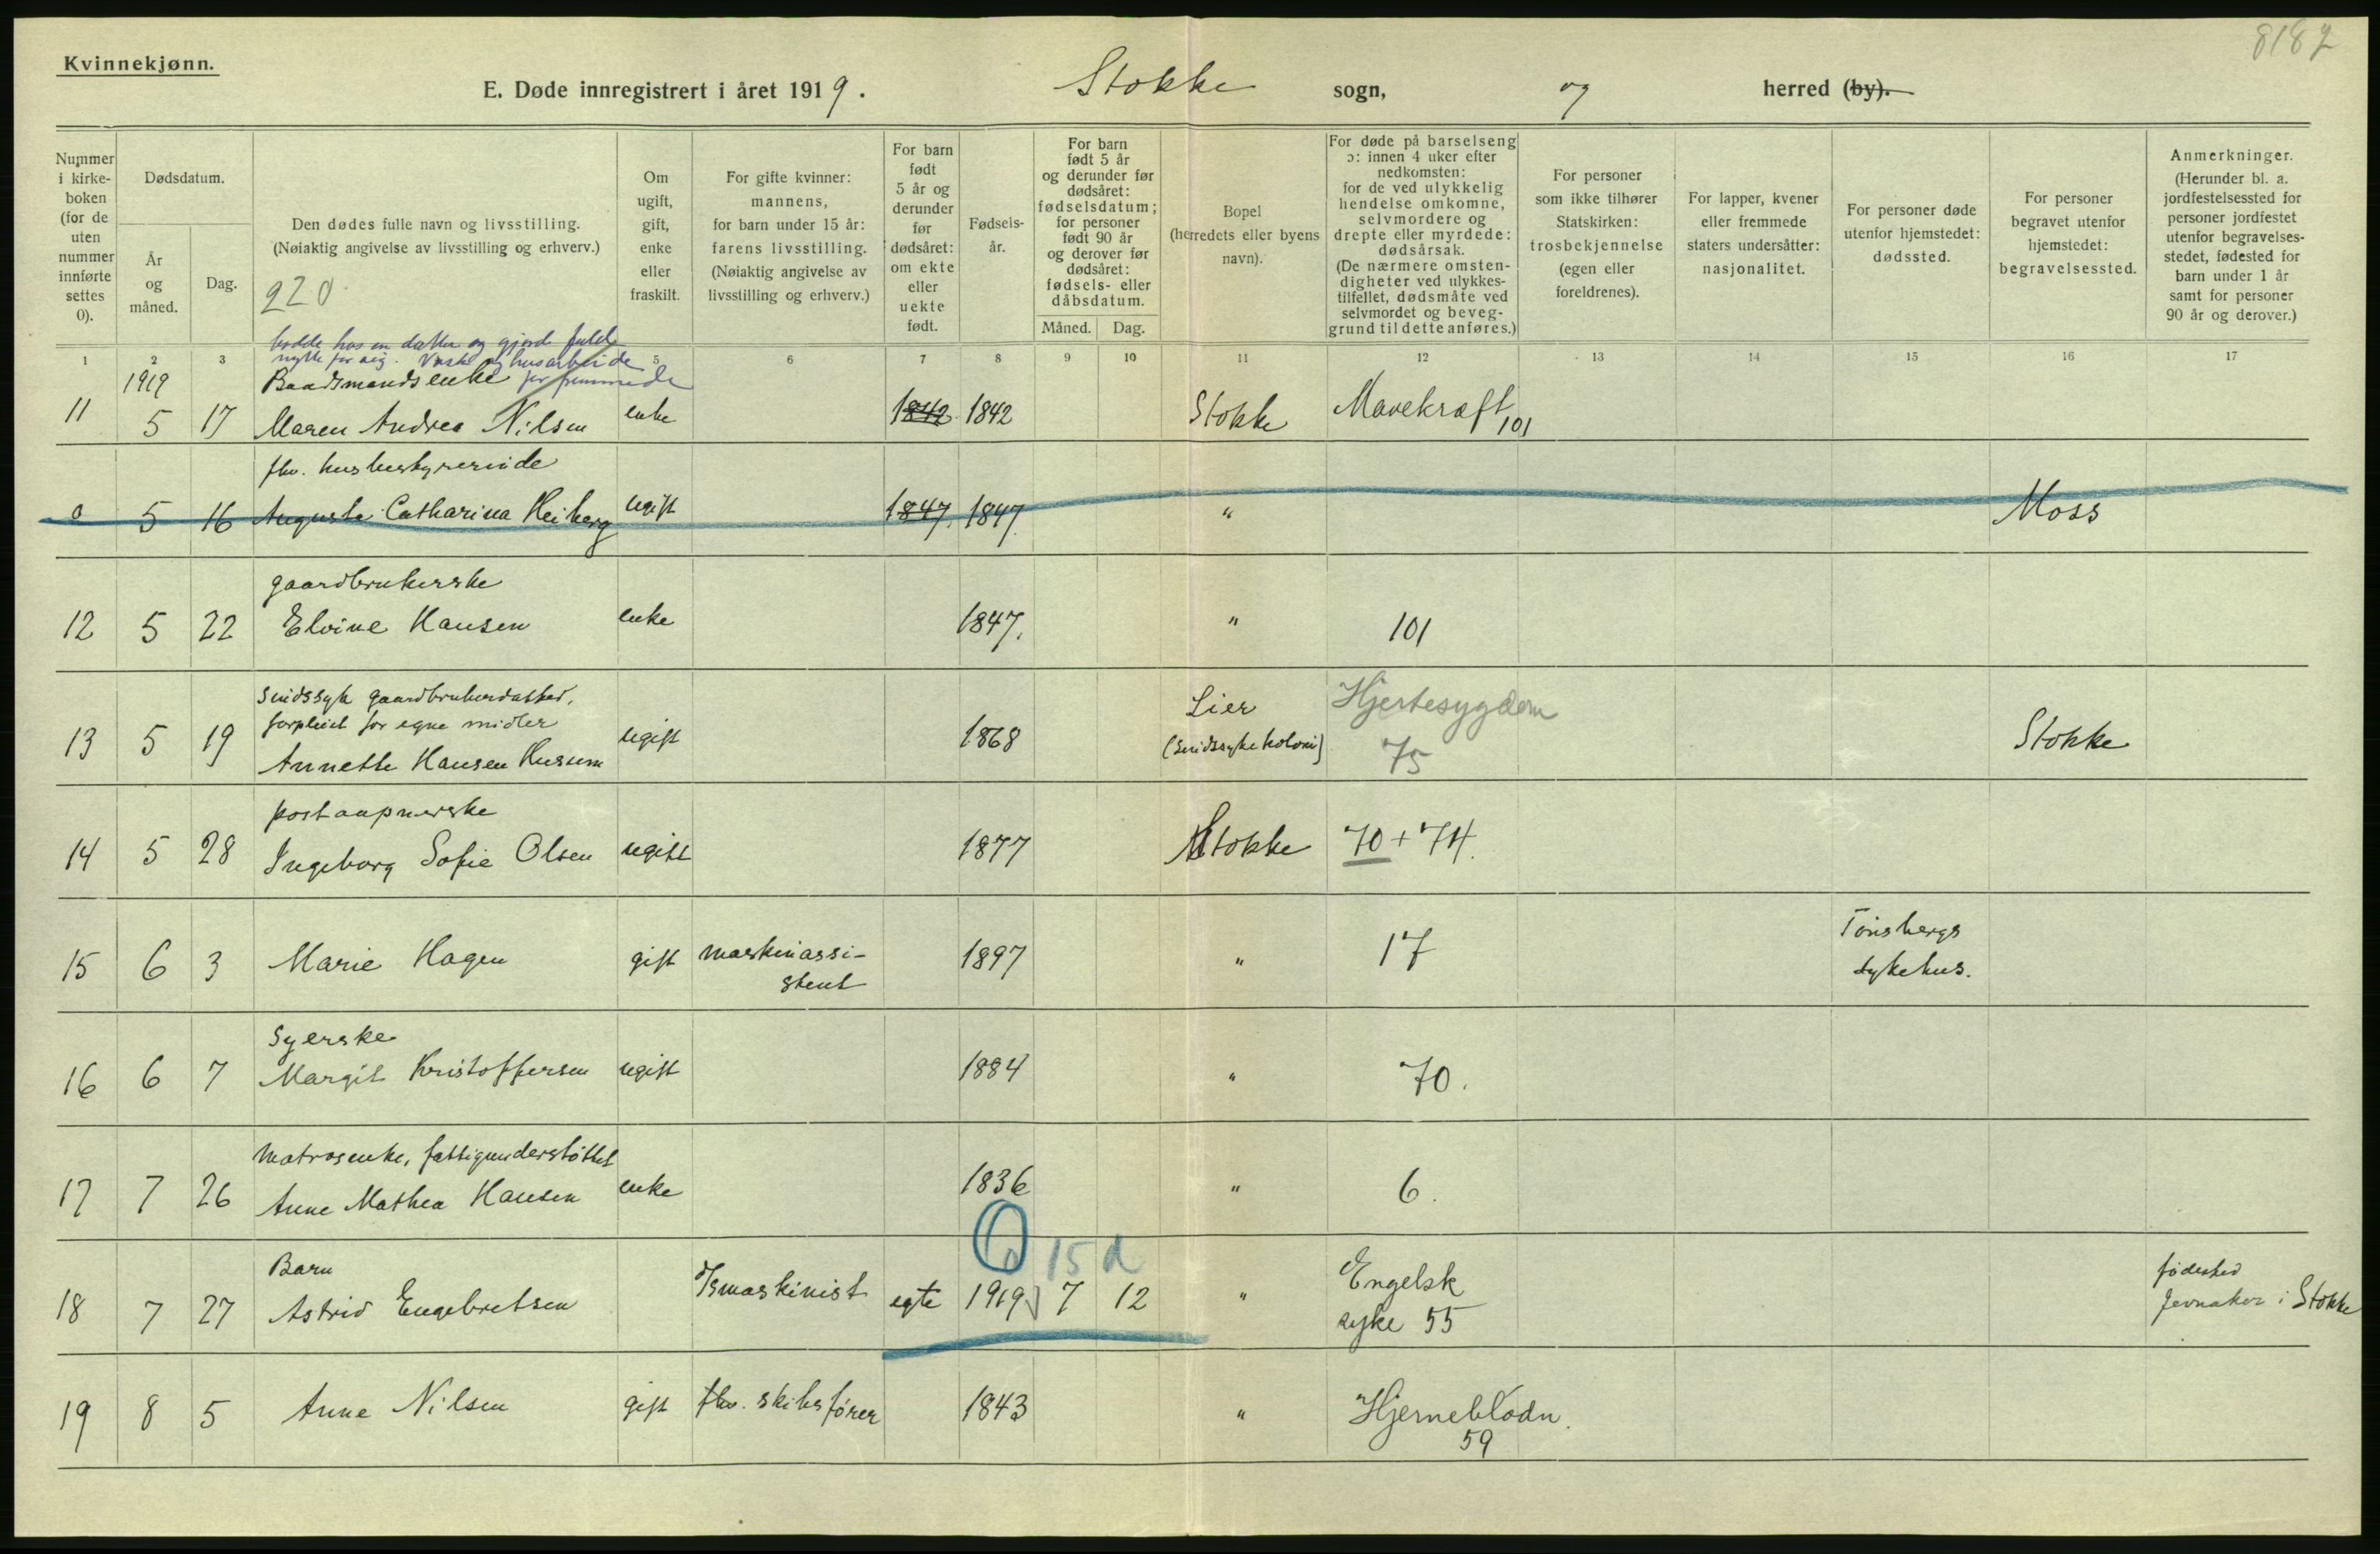 8182
Kvinnekjønn.
E. Døde innregistrert i året 1919. Stokke sogn, og herred (by).
Nummer i kirke- boken (for de uten nummer innførte settes 0).
Dødsdatum.
År og måned.
Dag.
Den dødes fulle navn og livsstilling.
(Nøiaktig angivelse av livsstilling og erhverv.)
220
Om ugift, gift, enke eller fraskilt.
For gifte kvinner: mannens, for barn under 15 år: farens livsstilling. (Nøiaktig angivelse av livsstilling og erhverv.)
For barn født 5 år og derunder før dødsåret: om ekte eller uekte født.
Fødsels- år.
For barn født 5 år og derunder før dødsåret: fødselsdatum; for personer født 90 år og derover før dødsåret: fødsels- eller dåbsdatum.
Måned. Dag.
Bopel (herredets eller byens navn).
For døde på barselseng ɔ: innen 4 uker efter nedkomsten: for de ved ulykkelig hendelse omkomne, selvmordere og drepte eller myrdede: dødsårsak. (De nærmere omsten- digheter ved ulykkes- tilfellet, dødsmåte ved selvmordet og beveg- grund til dette anføres.)
For personer som ikke tilhører Statskirken: trosbekjennelse (egen eller foreldrenes).
For lapper, kvener eller fremmede staters undersåtter: nasjonalitet.
For personer døde utenfor hjemstedet: dødssted.
For personer begravet utenfor hjemstedet: begravelsessted.
Anmerkninger. (Herunder bl. a. jordfestelsessted for personer jordfestet utenfor begravelses- stedet, fødested for barn under 1 år samt for personer 90 år og derover.)
1 2 3 5 6 7 8 9 10 11 12 13 14 15 16 17
bodde hos en datter og gjorde fuld
nytte for sig. Vask og husarbeide
for fremmede
1919 Baadsmandsenke
11 5 17 Maren Andrea Nilsen enke 1842 1842 Stokke Mavekræft 101
fhv. husbestyrerinde
0 5 16 Augusta Catharina Heiberg ugift 1847. 1847 " Moss
gaardbrukerske
12 5 22 Elvine Hansen enke 1847. " 101
sindssyk gaardbrukerdatter,
forpleiet for egne midler
13 5 19 Annette Hansen Husum ugift 1868 Lier (Sindssykekoloni) Hjertesygdom 75 Stokke
postaapnerske
14 5 28 Ingeborg Sofie Olsen ugift 1877 Stokke 70 + 74.
15 6 3 Marie Hagen gift maskinassi- stent 1897 " 17 Tønsbergs sykehus.
Syerske
16 6 7 Margit Kristoffersen ugift 1884 " 70.
Matrosenke, fattigunderstøttet
17 7 26 Anne Mathea Hansen enke 1836 " 6.
0 15 d
Barn
18 7 27 Astrid Engebretsen maskinist egte 1919 7 12 " Engelsk syke 55 fødested Jevnaker i Stokke
19 8 5 Anne Nilsen gift fhv. skibsfører 1843 " Hjerneblødn. 59